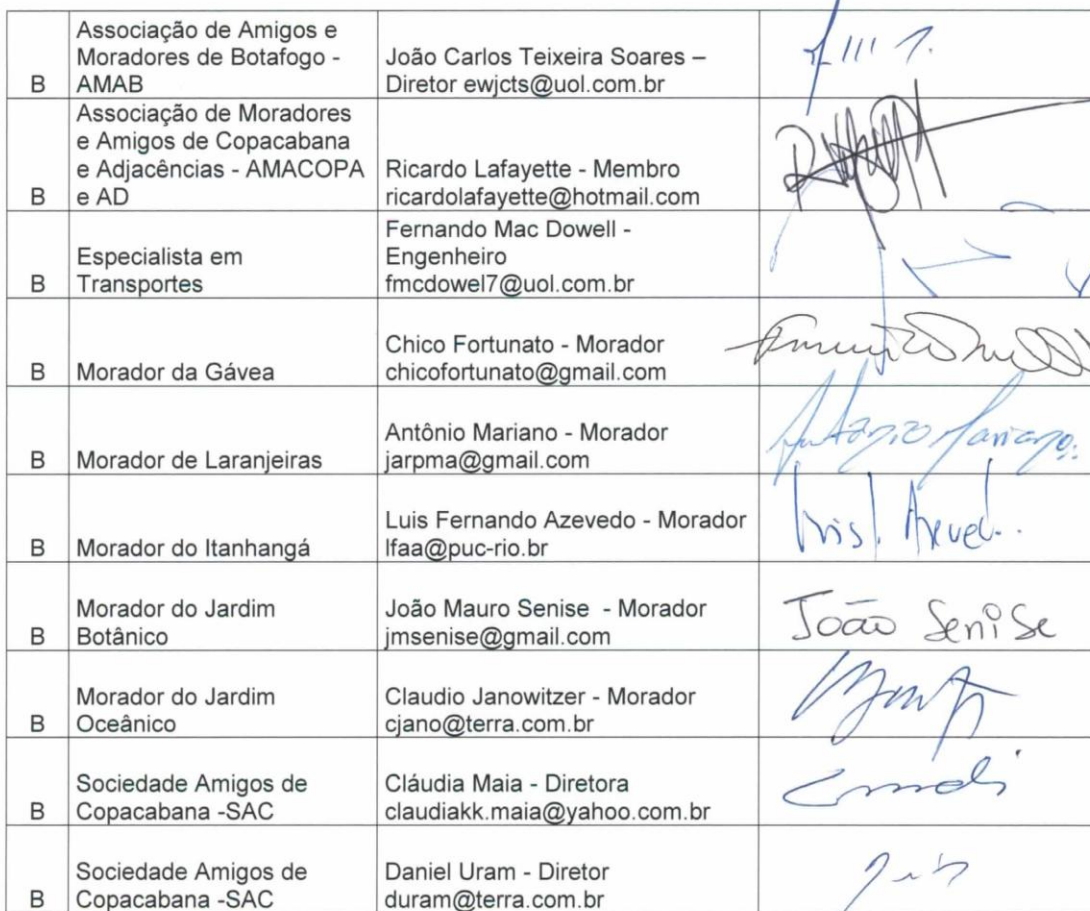 B
Associação de Amigos e
Moradores de Botafogo -
AMAB
João Carlos Teixeira Soares –
Diretor ewjcts@uol.com.br
B
Associação de Moradores
e Amigos de Copacabana
e Adjacências - AMACOPA
e AD
Ricardo Lafayette - Membro
ricardolafayette@hotmail.com
B
Especialista em
Transportes
Fernando Mac Dowell -
Engenheiro
fmcdowel7@uol.com.br
B
Morador da Gávea
Chico Fortunato - Morador
chicofortunato@gmail.com
B
Morador de Laranjeiras
Antônio Mariano - Morador
jarpma@gmail.com
Antônio Mariano
B
Morador do Itanhangá
Luis Fernando Azevedo - Morador
lfaa@puc-rio.br
B
Morador do Jardim
Botânico
João Mauro Senise - Morador
jmsenise@gmail.com
João Senise
B
Morador do Jardim
Oceânico
Claudio Janowitzer - Morador
cjano@terra.com.br
B
Sociedade Amigos de
Copacabana -SAC
Cláudia Maia - Diretora
claudiakk.maia@yahoo.com.br
B
Sociedade Amigos de
Copacabana -SAC
Daniel Uram - Diretor
duram@terra.com.br